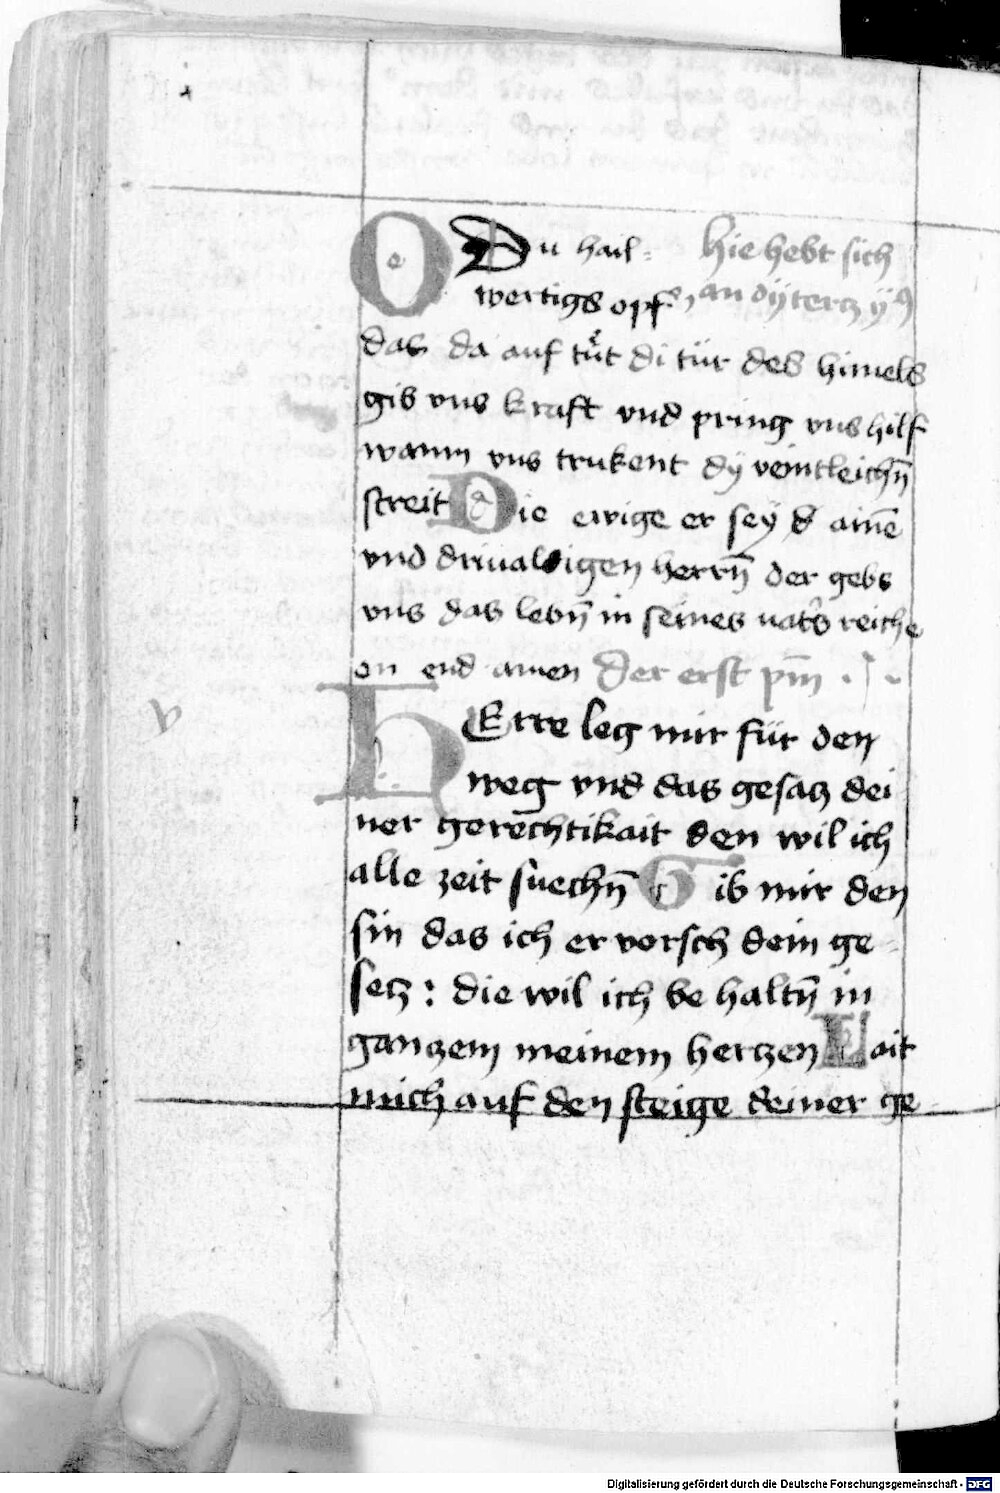 O Du hail⸗ hie hebt sich
wertigs opfˀ, an dÿ tercz ÿ
das da auf tuͤt di tür des himels
gib vns kraft vnd pring vns hilf
wann vns trukent dÿ veintleichn̄
streit Die ewige er seÿ d ainē
vnd driualdigen herrn̄ der gebs
vns das lebn̄ in seines vatˀs reiche
on end amen Der erst pm̄ .
v
HErre leg mir für den
weg vnd das gesacz dei
ner gerechtikait den wil ich
alle zeit suechn̄ Gib mir den
sin das ich er vorsch dein ge⸗
secz : die wil ich be haltn̄ in
ganczem meinem herczen Lait
mich auf den steige deiner ge
Digitalisierung gefördert durch die Deutsche Forschungsgemeinschaft - DFG